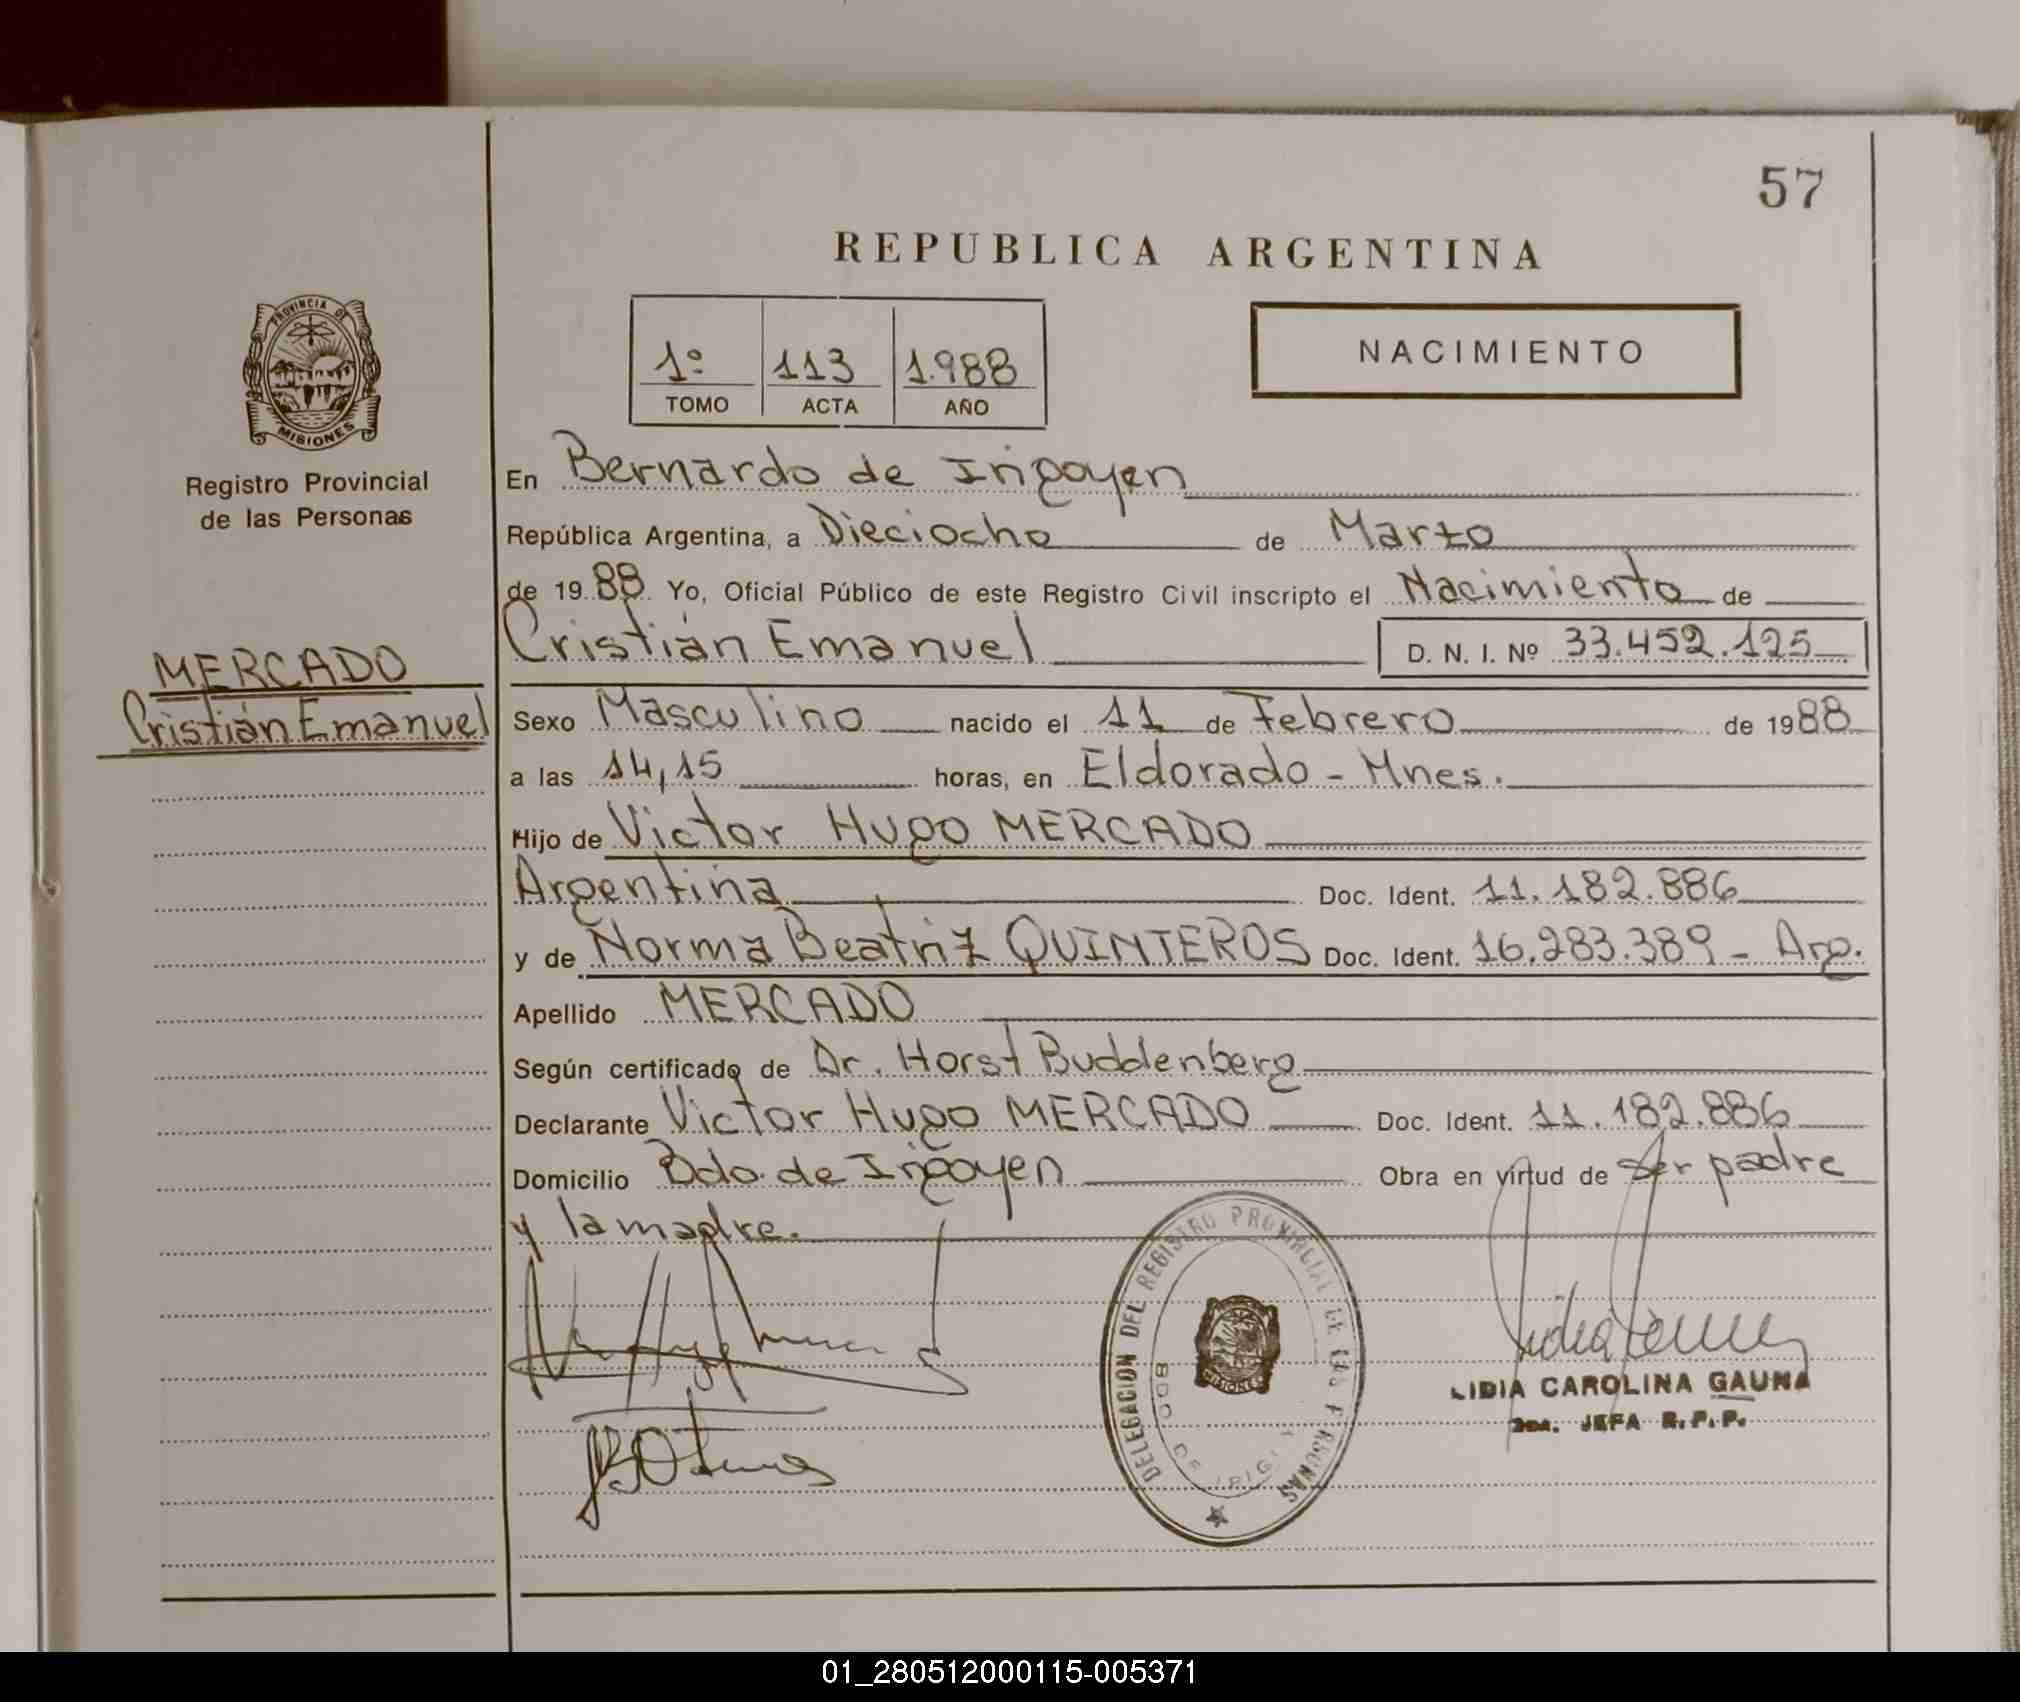 57
REPUBLICA ARGENTINA
PROVINCIA DE
MISIONES
Registro Provincial
de las Personas
1º 113 1.988
TOMO ACTA AÑO
NACIMIENTO
En Bernardo de Irigoyen
República Argentina, a Dieciocho de Marzo
de 1988 Yo, Oficial Público de este Registro Civil inscripto el Nacimiento de
Cristián Emanuel D. N. I. Nº 33.452.125
MERCADO
Cristián Emanuel
Sexo Masculino nacido el 11 de Febrero de 1988
a las 14,15 horas, en Eldorado - Mnes.
Hijo de Victor Hugo MERCADO
Argentina Doc. Ident. 11.182.886
y de Norma Beatriz QUINTEROS Doc. Ident. 16.283.389 - Arg.
Apellido MERCADO
Según certificado de Dr. Horst Buddenberg
Declarante Victor Hugo MERCADO Doc. Ident. 11.182.886
Domicilio Bdo. de Irigoyen Obra en virtud de ser padre
y la madre.
DELEGACION DEL REGISTRO PROVINCIAL DE LAS PERSONAS
MISIONES
LIDIA CAROLINA GAUNA
2da. JEFA R.P.P.
01_280512000115-005371